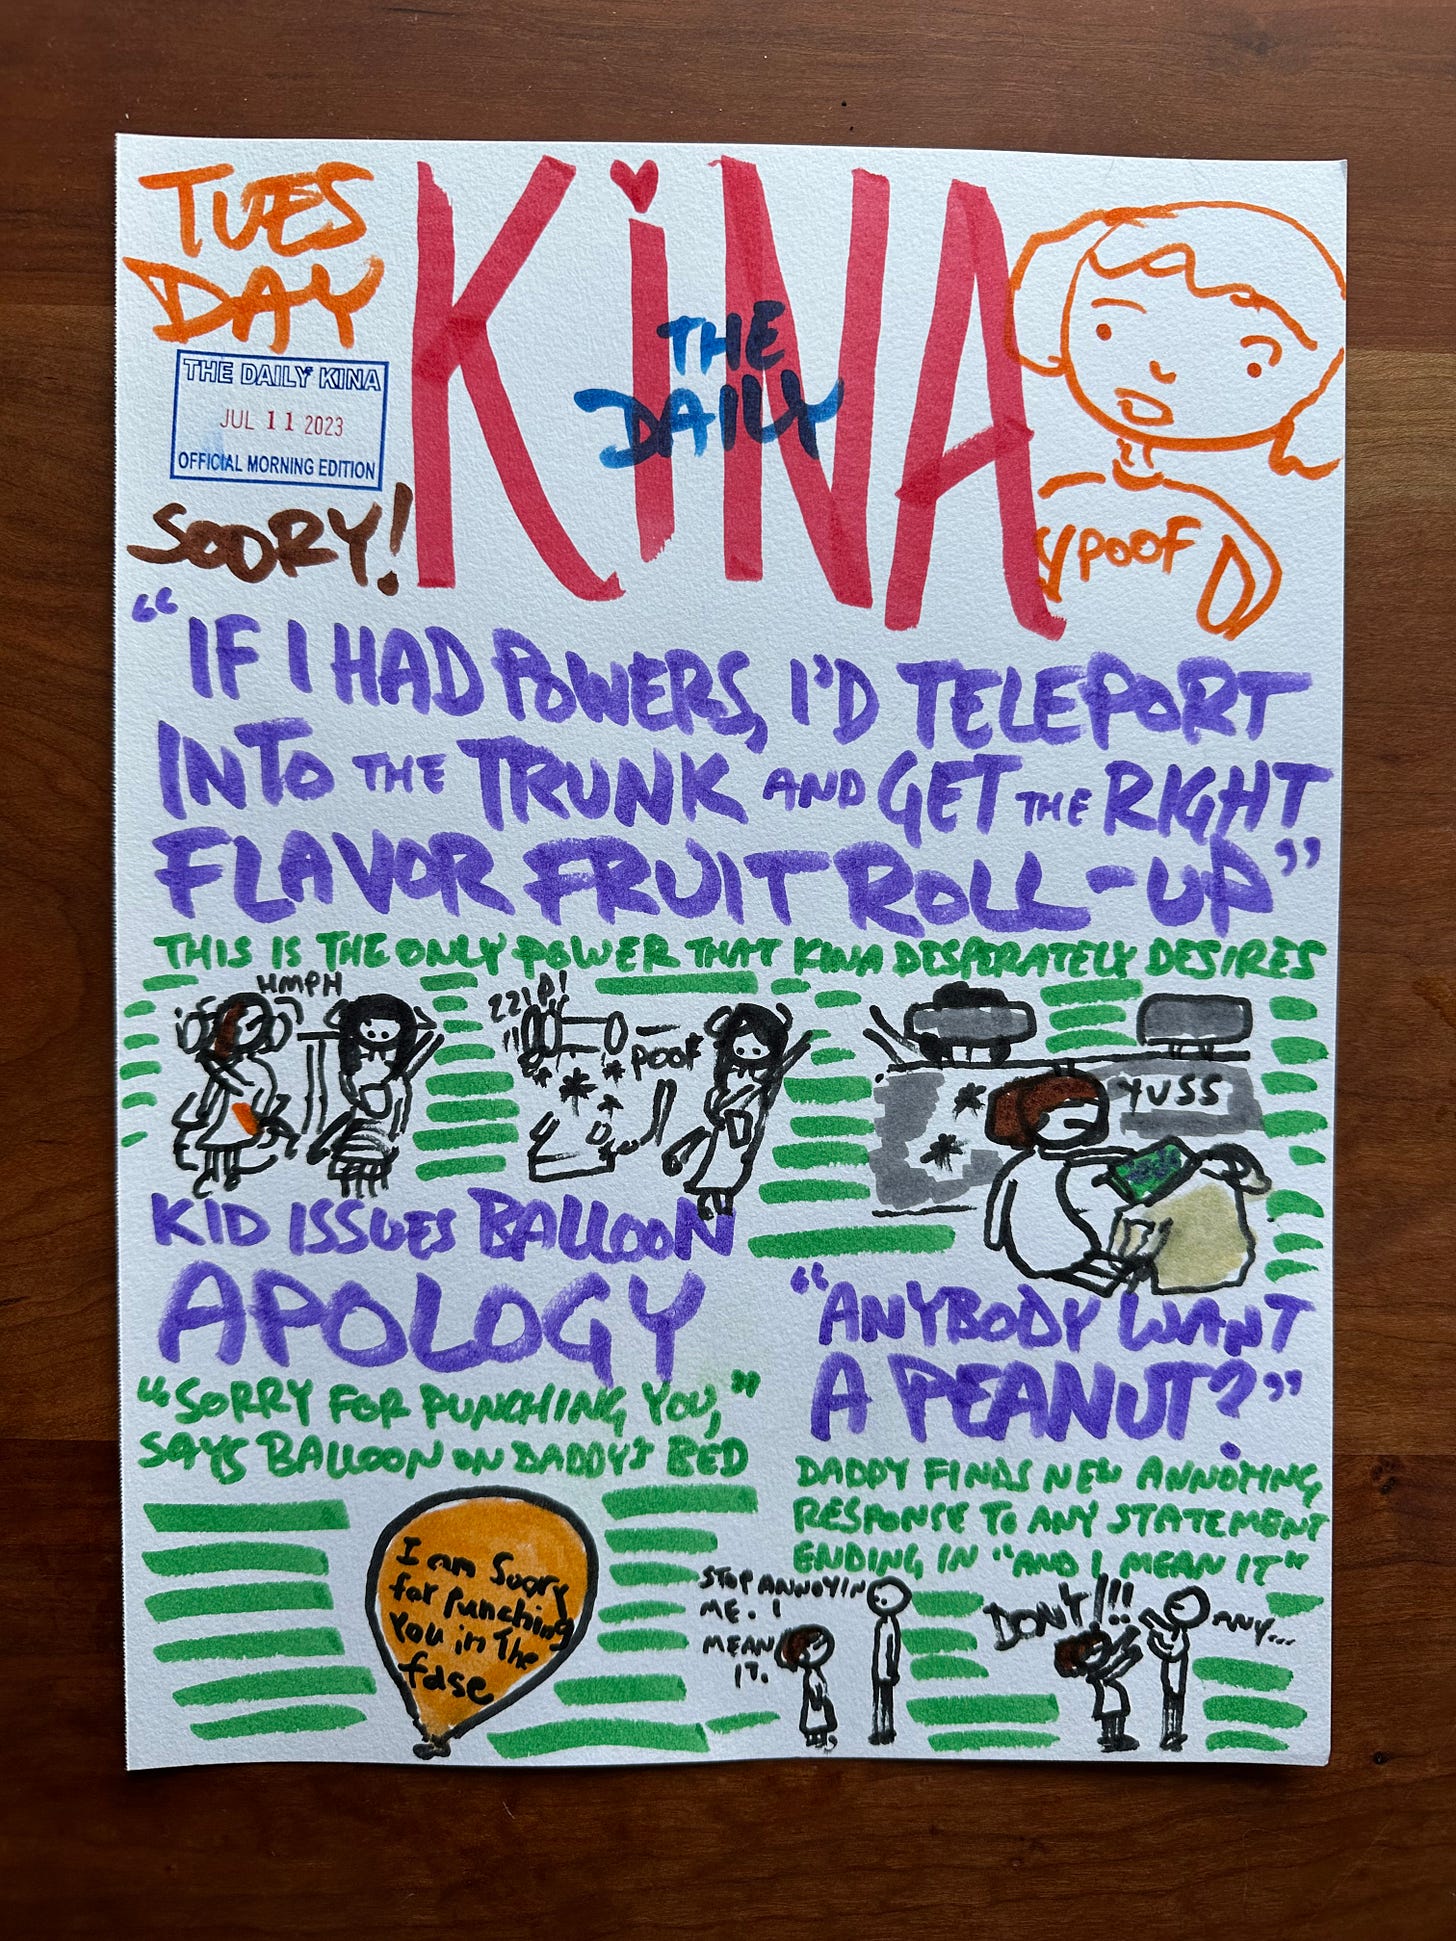 TUES
DAY
KiNA
THE
DAILY
THE DAILY KINA
JUL 11 2023
OFFICIAL MORNING EDITION
SORRY!
POOF
"IF I HAD POWERS, I'D TELEPORT
INTO THE TRUNK AND GET THE RIGHT
FLAVOR FRUIT ROLL-UP"
THIS IS THE ONLY POWER THAT KINA DESPERATELY DESIRES
HMPH
ZZIP!
POOF
YUSS
KID ISSUES BALLOON
APOLOGY
"SORRY FOR PUNCHING YOU,"
SAYS BALLOON ON DADDY'S BED
I am Sorry
for punching
You in The
fase
"ANYBODY WANT
A PEANUT?"
DADDY FINDS NEW ANNOYING
RESPONSE TO ANY STATEMENT
ENDING IN "AND I MEAN IT"
STOP ANNOYIN
ME. I
MEAN
IT.
DON'T!!!
ANY...